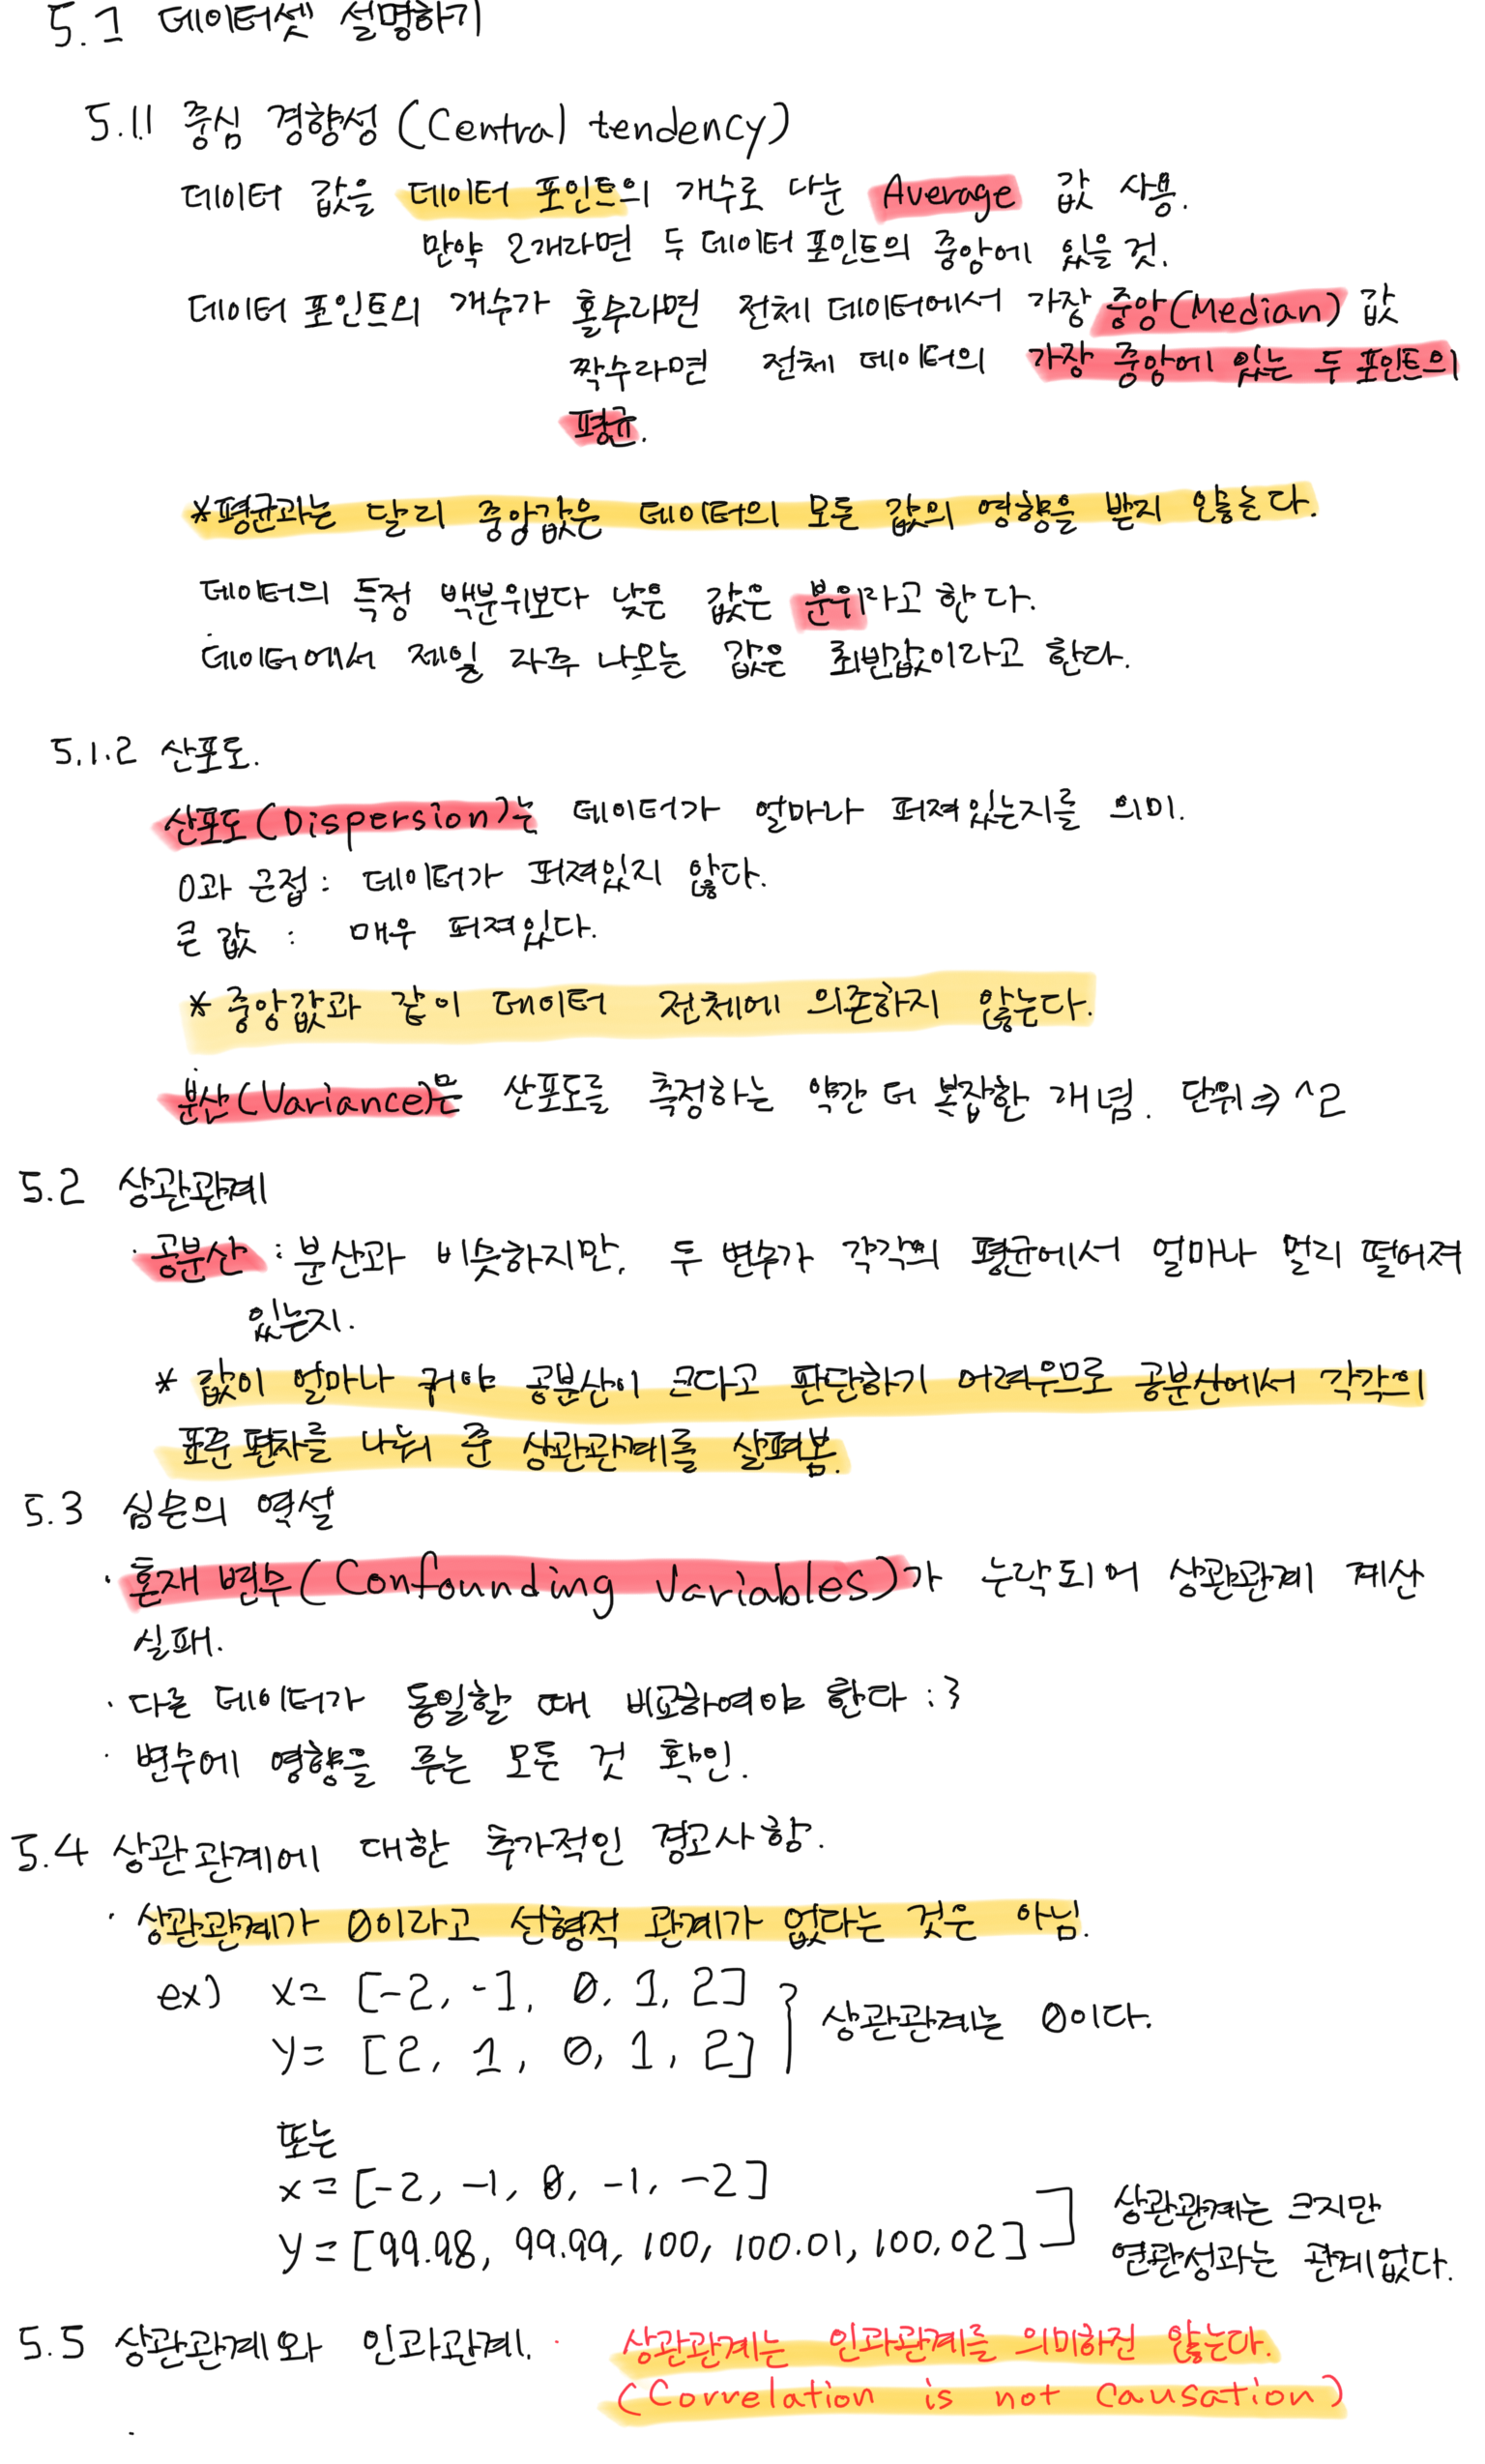 5.1 데이터셋 설명하기
5.1.1 중심 경향성 (Central tendency)
데이터 값을 데이터 포인트의 개수로 나눈 Average 값 사용.
만약 2개라면 두 데이터 포인트의 중앙에 있을 것.
데이터 포인트의 개수가 홀수라면 전체 데이터에서 가장 중앙(Median) 값
짝수라면 전체 데이터의 가장 중앙에 있는 두 포인트의
평균.
*평균과는 달리 중앙값은 데이터의 모든 값의 영향을 받지 않는다.
데이터의 특정 백분위보다 낮은 값은 분위라고 한다.
데이터에서 제일 자주 나오는 값은 최빈값이라고 한다.
5.1.2 산포도.
산포도(Dispersion)는 데이터가 얼마나 퍼져있는지를 의미.
0과 근접 : 데이터가 퍼져있지 않다.
큰 값 : 매우 퍼져있다.
* 중앙값과 같이 데이터 전체에 의존하지 않는다.
분산(Variance)은 산포도를 측정하는 약간 더 복잡한 개념. 단위 => ^2
5.2 상관관계
· 공분산 : 분산과 비슷하지만, 두 변수가 각각의 평균에서 얼마나 멀리 떨어져
있는지.
* 값이 얼마나 커야 공분산이 크다고 판단하기 어려우므로 공분산에서 각각의
표준 편차를 나눠 준 상관관계를 살펴봄.
5.3 심슨의 역설
· 혼재 변수(Confounding Variables)가 누락되어 상관관계 계산
실패.
· 다른 데이터가 동일할 때 비교하여야 한다 :3
· 변수에 영향을 주는 모든 것 확인.
5.4 상관관계에 대한 추가적인 경고사항.
· 상관관계가 0이라고 선형적 관계가 없다는 것은 아님.
ex) x= [-2, -1, 0, 1, 2]
y= [2, 1, 0, 1, 2] } 상관관계는 0이다.
또는
x = [-2, -1, 0, -1, -2]
y = [99.98, 99.99, 100, 100.01, 100.02] ] 상관관계는 크지만
연관성과는 관계없다.
5.5 상관관계와 인과관계. · 상관관계는 인과관계를 의미하진 않는다.
(Correlation is not causation)